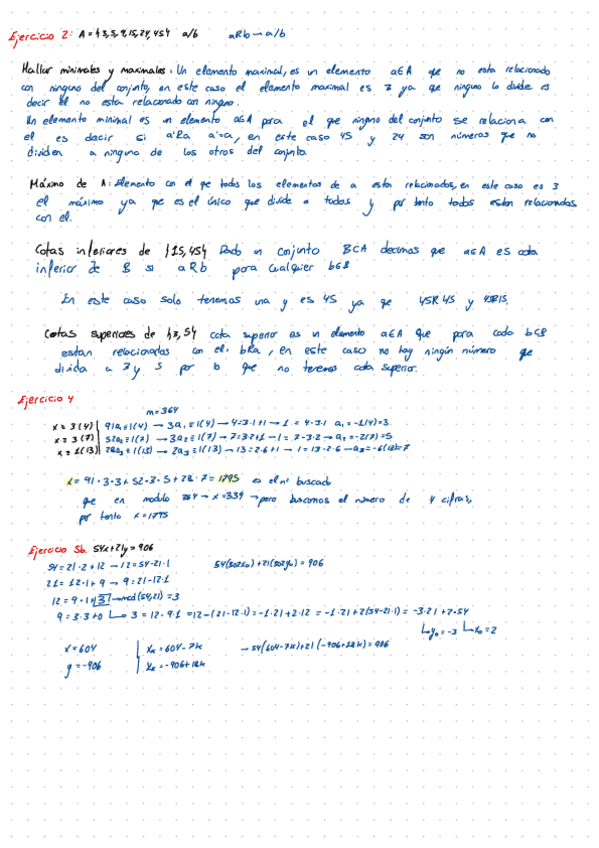 Ejercicio 2: A = {3,5,9,15,24,45} a/b aRb → a/b
Hallar minimales y maximales: Un elemento maximal, es un elemento a∈A que no esta relacionado
con ninguno del conjunto, en este caso el elemento maximal es 3 ya que ninguno lo divide es
decir él no esta relacionado con ninguno.
Un elemento minimal es un elemento a∈A para el que ninguno del conjunto se relaciona con
el es decir si a'Ra a'=a, en este caso 45 y 24 son números que no
dividen a ninguno de los otros del conjunto.
Máximo de A: Elemento con el que todos los elementos de a estan relacionados, en este caso es 3
el máximo ya que es el único que divide a todos y por tanto todos estan relacionados
con el.
Cotas inferiores de {15,45} Dado un conjunto BCA decimos que a∈A es cota
inferior de B si aRb para cualquier b∈B
En este caso solo tenemos una y es 45 ya que 45R45 y 45R15.
Cotas superiores de {3,5} cota superior es un elemento a∈A que para cada b∈B
estan relacionados con el. bRa, en este caso no hay ningún número que
divida a 3 y 5 por lo que no tenemos cota superior.
Ejercicio 4
m=364
x ≡ 3(4) | 91a₁≡1(4) → 3a₁≡1(4) → 4=3·1+1 → 1=4-3·1 a₁=-1(4)=3
x ≡ 3(7) | 52a₂≡1(7) → 3a₂≡1(7) → 7=3·2+1 → 1=7-3·2 → a₂=-2(7)=5
x ≡ 1(13) | 28a₃≡1(13) → 2a₃≡1(13) → 13=2·6+1 → 1=13-2·6 → a₃=-6(13)=7
x = 91·3·3+52·3·5+28·7=1795 es el nº buscado
que en modulo 364 → x=339 → pero buscamos el número de 4 cifras,
por tanto x=1795
Ejercicio 5b. 54x+21y=906
54=21·2+12 → 12=54-21·2 54(302x₀)+21(302y₀)=906
21=12·1+9 → 9=21-12·1
12=9·1+3 → mcd(54,21)=3
9=3·3+0 ↳ 3=12-9·1=12-(21-12·1)=-1·21+2·12=-1·21+2(54-21·2)=-3·21+2·54
↳y₀=-3 ↳x₀=2
x=604 | xₖ=604-7k → 54(604-7k)+21(-906+18k)=906
y=-906 | yₖ=-906+18k